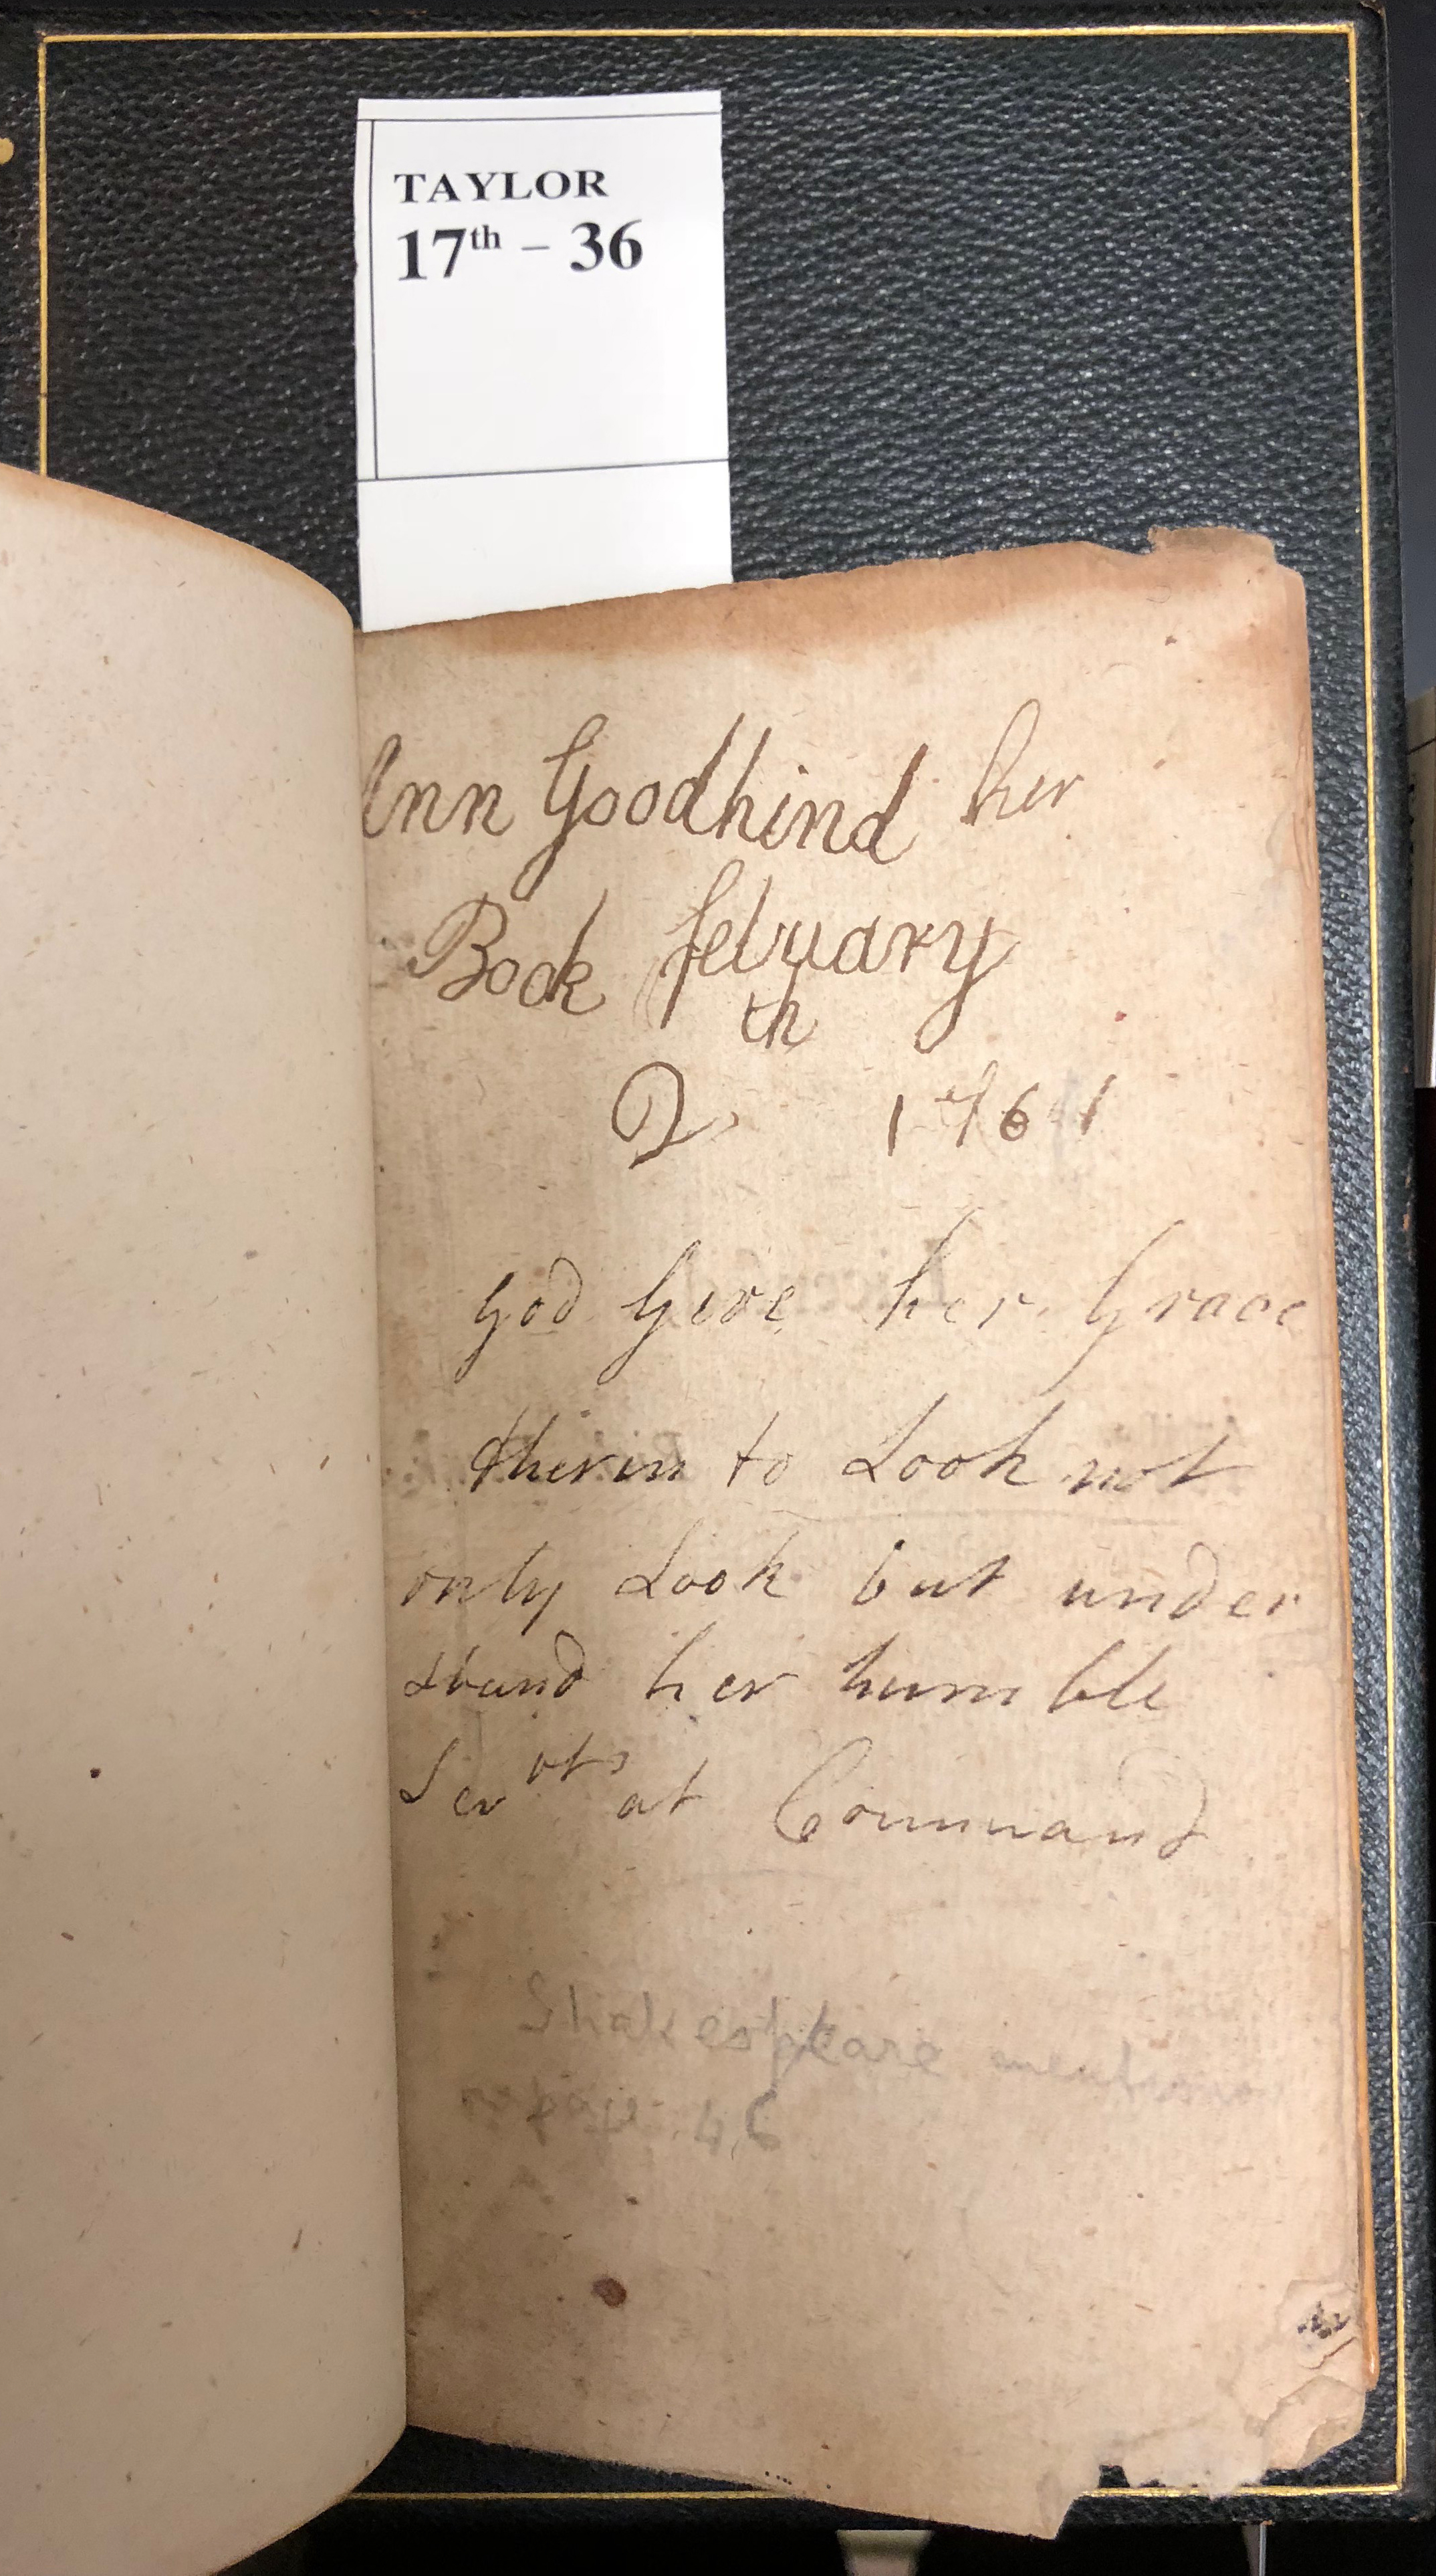 TAYLOR
17th – 36
Ann Goodhind her
Book february
th
2 1761
God Give her Grace
therin to Look not
only Look but under
stand her humble
Servts at Command
Shakespeare mentions
page 46